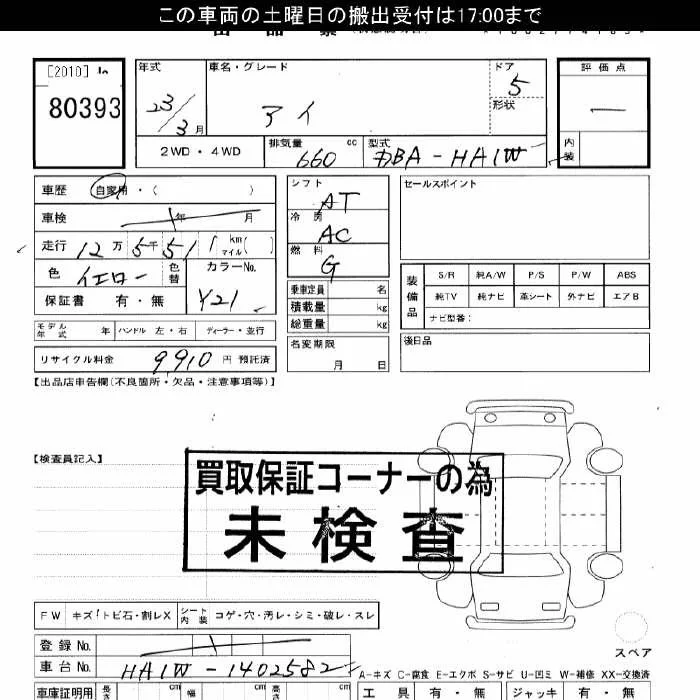 この車両の土曜日の搬出受付は17:00まで
[2010]
80393
年式 車名・グレード ドア 評価点
23/3月 アイ 5 —
形状
2WD・4WD 排気量 660 cc 型式 DBA-HA1W 内装
車歴 自家用・( )
車検 年 月
走行 12万5千51 km マイル( )
色 イエロー 色替 カラーNo.
保証書 有・無 Y21
モデル年式 年 ハンドル 左・右 ディーラー・並行
リサイクル料金 9910 円 預託済
シフト AT
冷房 AC
燃料 G
乗車定員 名
積載量 kg
総重量 kg
名変期限
月 日
セールスポイント
装備品 S/R 純A/W P/S P/W ABS
純TV 純ナビ 革シート 外ナビ エアB
ナビ型番:
後日品
【出品店申告欄(不良箇所・欠品・注意事項等)】
【検査員記入】
買取保証コーナーの為
未検査
FW キズ!トビ石・割レX シート内装 コゲ・穴・汚レ・シミ・破レ・スレ
スペア
登録No.
車台No. HA1W-1402582
A-キズ C-腐食 E-エクボ S-サビ U-凹ミ W-補修 XX-交換済
車庫証明用 長さ cm 幅 cm 高さ cm 工具 有・無 ジャッキ 有・無